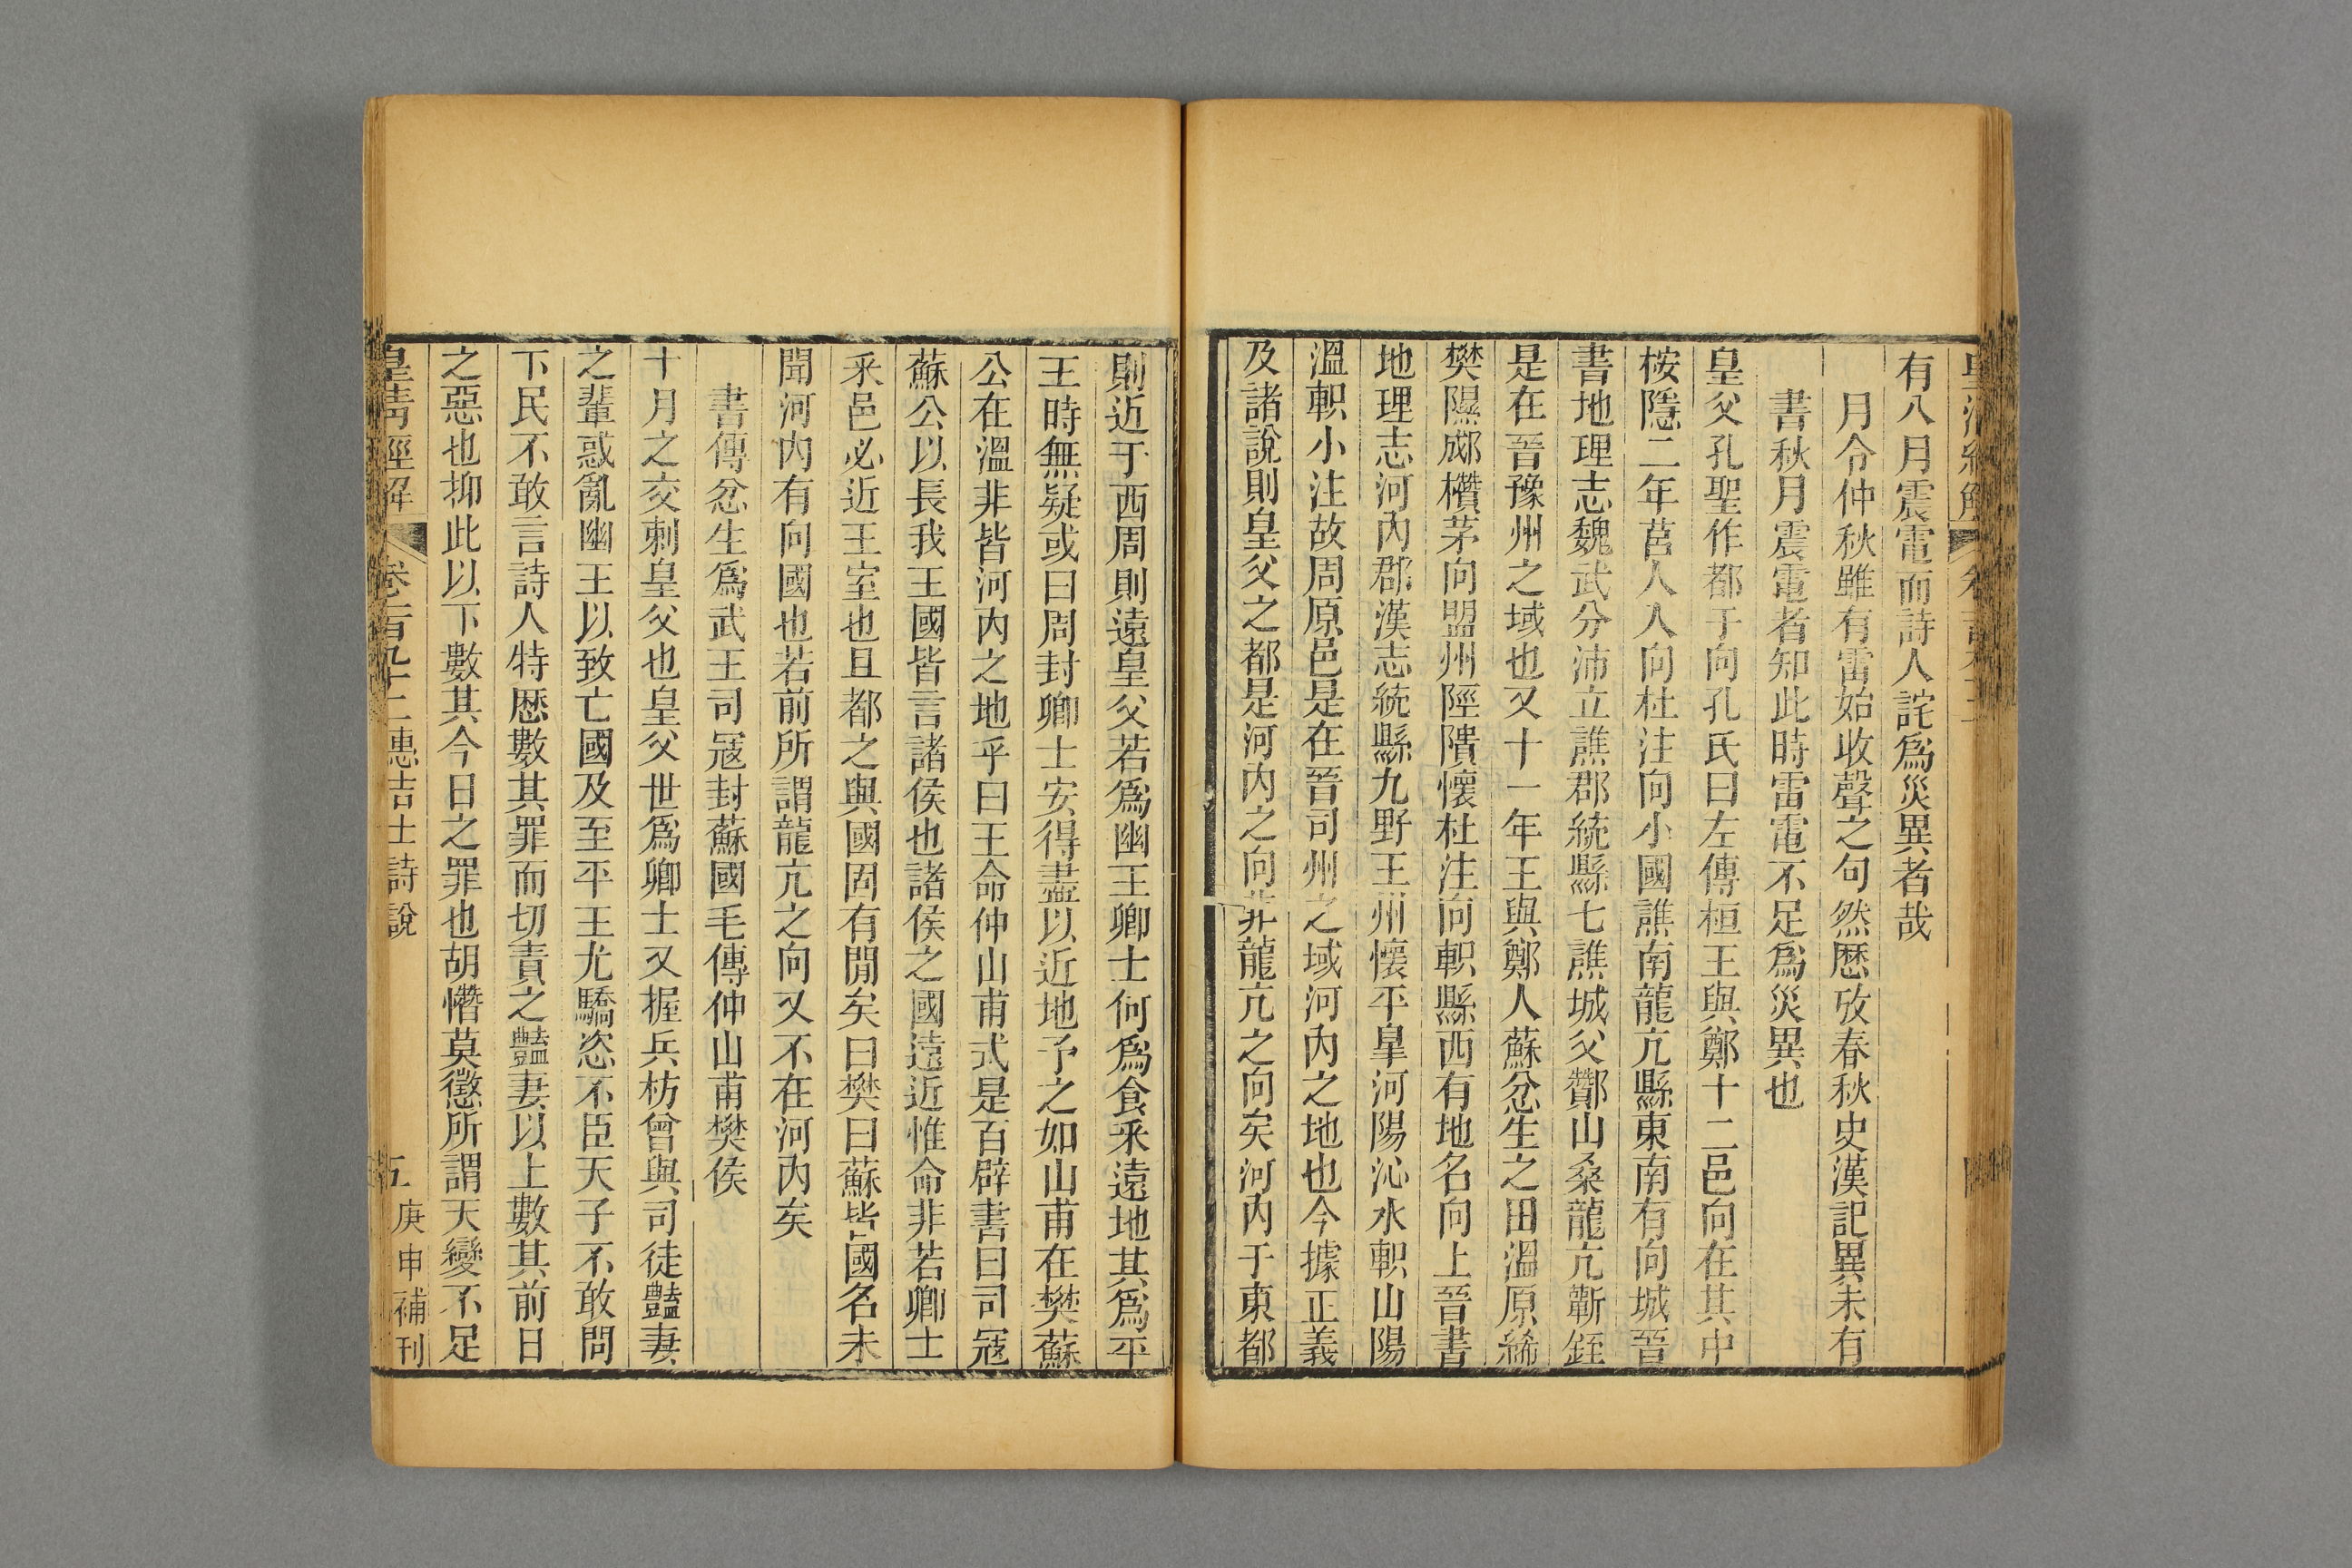 有八月震電而詩人詫爲災異者哉
月令仲秋雖有雷始收聲之句然歷攷春秋史漢記異未有
書秋月震電者知此時雷電不足爲災異也
皇父孔聖作都于向孔氏曰左傳桓王與鄭十二邑向在其中
桉隱二年莒人入向杜注向小國譙南龍亢縣東南有向城晉
書地理志魏武分沛立譙郡統縣七譙城父酇山桑龍亢蘄銍
是在晉豫州之域也又十一年王與鄭人蘇忿生之田溫原絺
樊隰郕欑茅向盟州陘隤懷杜注向軹縣西有地名向上晉書
地理志河內郡漢志統縣九野王州懷平皐河陽沁水軹山陽
溫軹小注故周原邑是在晉司州之域河內之地也今據正義
及諸說則皇父之都是河內之向非龍亢之向矣河內于東都
則近于西周則遠皇父若爲幽王卿士何爲食釆遠地其爲平
王時無疑或曰周封卿士安得盡以近地予之如山甫在樊蘇
公在溫非皆河內之地乎曰王命仲山甫式是百辟書曰司寇
蘇公以長我王國皆言諸侯也諸侯之國遠近惟命非若卿士
釆邑必近王室也且都之與國固有閒矣曰樊曰蘇皆國名未
聞河內有向國也若前所謂龍亢之向又不在河內矣
書傳忿生爲武王司寇封蘇國毛傳仲山甫樊侯
十月之交刺皇父也皇父世爲卿士又握兵枋曾與司徒豔妻
之輩惑亂幽王以致亡國及至平王尤驕恣不臣天子不敢問
下民不敢言詩人特歷數其罪而切責之豔妻以上數其前日
之惡也抑此以下數其今日之罪也胡憯莫懲所謂天變不足
皇清經解 卷一百九十二 惠吉士詩說 五 庚申補刊